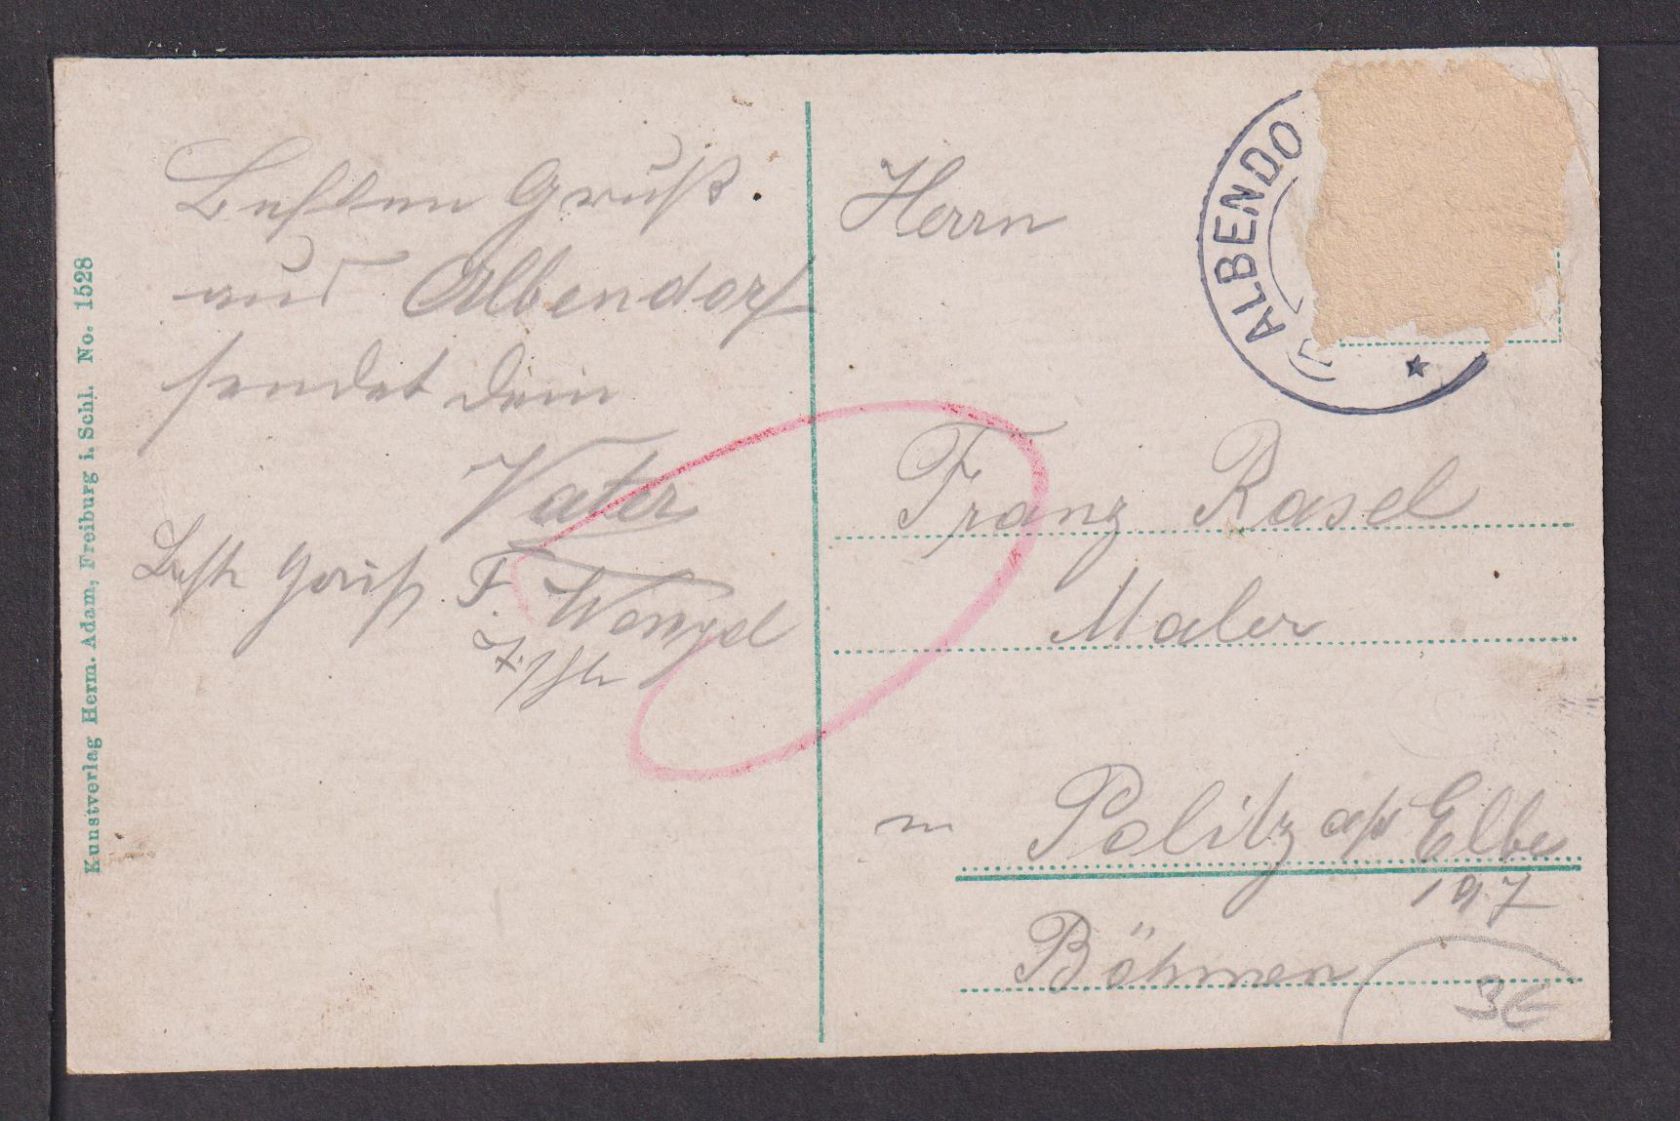 Besten Gruß
aus Albendorf
sendet dein
Vater
Beste Grüße F. Wenzel
Herrn
Franz Rasel
Maler
in Politz a/d Elbe
197
Böhmen
3€
ALBENDO
Kunstverlag Herm. Adam, Freiburg i. Schl. No. 1528